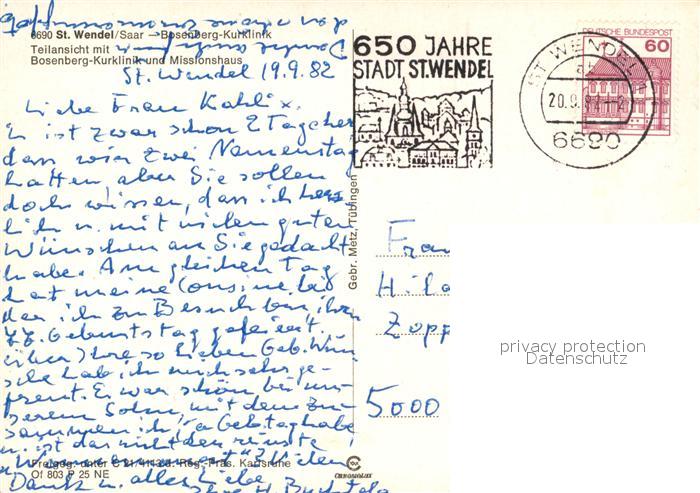 6690 St. Wendel/Saar — Bosenberg-Kurklinik
Teilansicht mit
Bosenberg-Kurklinik und Missionshaus
St. Wendel 19.9.82
Liebe Frau
Es ist zwar schon 2 Tage her
dass wir zwei Namenstag
hatten aber Sie sollen
doch wissen, dass ich herz-
lich u. mit vielen guten
Wünschen an Sie gedacht
habe. Am gleichen Tag
hat meine Cousine, bei
der ich zu Besuch bin, ihren
77. Geburtstag gefeiert.
über Ihre so lieben Geb. Wün
sche hab ich mich sehr ge-
freut. Es war schön bei un-
serem Sohn, mit dem zu-
sammen ich ja Gebtag habe
u. ist das nicht
Dank u. alles Liebe
Ihre H.
Freigeg. unter C 21/4113 d. Reg.-Präs. Karlsruhe
Of 803 P 25 NE
Gebr. Metz, Tübingen
650 JAHRE
STADT ST.WENDEL
ST WENDEL
20.9.82
6690
DEUTSCHE BUNDESPOST
60
Frau
Zopf
5000
privacy protection
Datenschutz